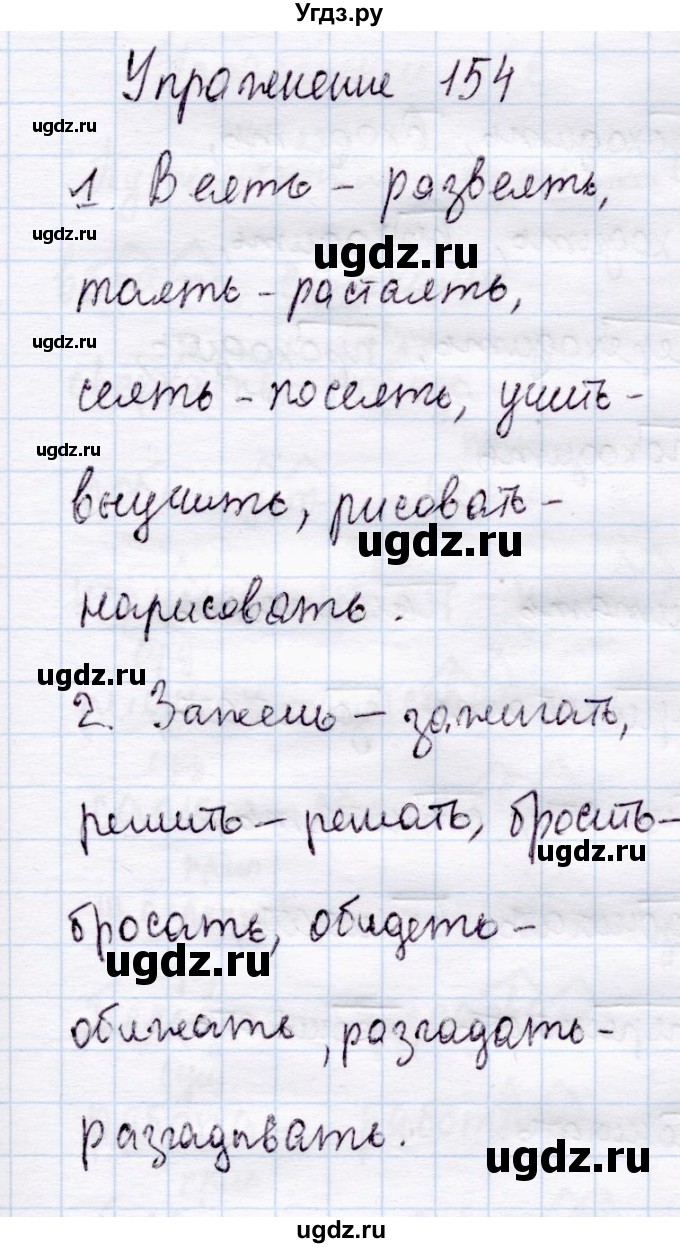 Угдз.ру
Упражнение 154
ugdz.ru
1. Веять - развеять,
ugdz.ru
ugdz.ru
таять - растаять,
ugdz.ru
сеять - посеять, учить -
ugdz.ru
выучить, рисовать -
ugdz.ru
нарисовать.
ugdz.ru
2. Зажечь - зажигать,
решить - решать, бросить -
ugdz.ru
бросать, обидеть -
ugdz.ru
обижать, разгадать -
разгадывать.
ugdz.ru
ugdz.ru